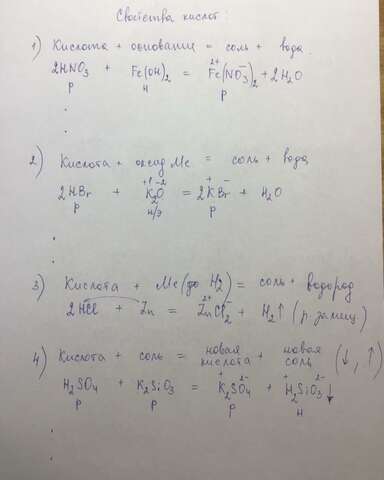 Свойства кислот:
1) Кислота + основание = соль + вода.
2HNO₃ + Fe(OH)₂ = Fe(NO₃)₂ + 2H₂O
2+ -
р н р
2) Кислота + оксид Ме = соль + вода
2HBr + K₂O = 2KBr + H₂O
+1 -2 + -
р н/э р
3) Кислота + Ме (до H₂) = соль + водород
2HCl + Zn = ZnCl₂ + H₂↑ (р. замещ)
2+ -
4) Кислота + соль = новая кислота + новая соль (↓, ↑)
H₂SO₄ + K₂SiO₃ = K₂SO₄ + H₂SiO₃↓
+ 2- + 2-
р р р н